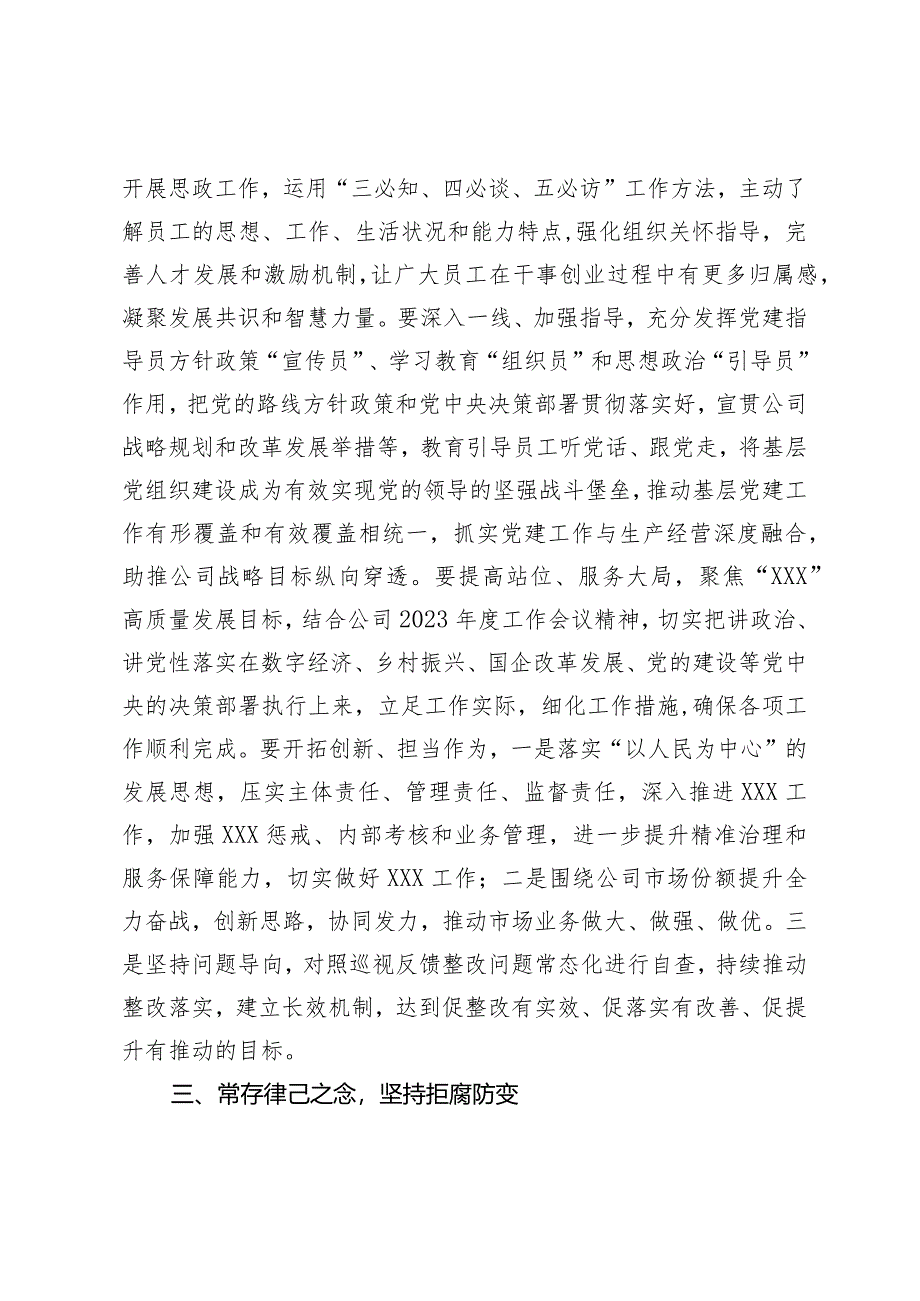 开展思政工作，运用“三必知、四必谈、五必访”工作方法，主动了
解员工的思想、工作、生活状况和能力特点,强化组织关怀指导，完
善人才发展和激励机制,让广大员工在干事创业过程中有更多归属感，
凝聚发展共识和智慧力量。要深入一线、加强指导，充分发挥党建指
导员方针政策“宣传员”、学习教育“组织员”和思想政治“引导员”
作用，把党的路线方针政策和党中央决策部署贯彻落实好，宣贯公司
战略规划和改革发展举措等，教育引导员工听党话、跟党走，将基层
党组织建设成为有效实现党的领导的坚强战斗堡垒，推动基层党建工
作有形覆盖和有效覆盖相统一，抓实党建工作与生产经营深度融合，
助推公司战略目标纵向穿透。要提高站位、服务大局，聚焦“XXX”
高质量发展目标，结合公司 2023 年度工作会议精神，切实把讲政治、
讲党性落实在数字经济、乡村振兴、国企改革发展、党的建设等党中
央的决策部署执行上来，立足工作实际，细化工作措施,确保各项工
作顺利完成。要开拓创新、担当作为，一是落实“以人民为中心”的
发展思想，压实主体责任、管理责任、监督责任，深入推进 XXX 工
作，加强 XXX 惩戒、内部考核和业务管理，进一步提升精准治理和
服务保障能力，切实做好 XXX 工作；二是围绕公司市场份额提升全
力奋战，创新思路，协同发力，推动市场业务做大、做强、做优。三
是坚持问题导向，对照巡视反馈整改问题常态化进行自查，持续推动
整改落实，建立长效机制，达到促整改有实效、促落实有改善、促提
升有推动的目标。
三、常存律己之念，坚持拒腐防变